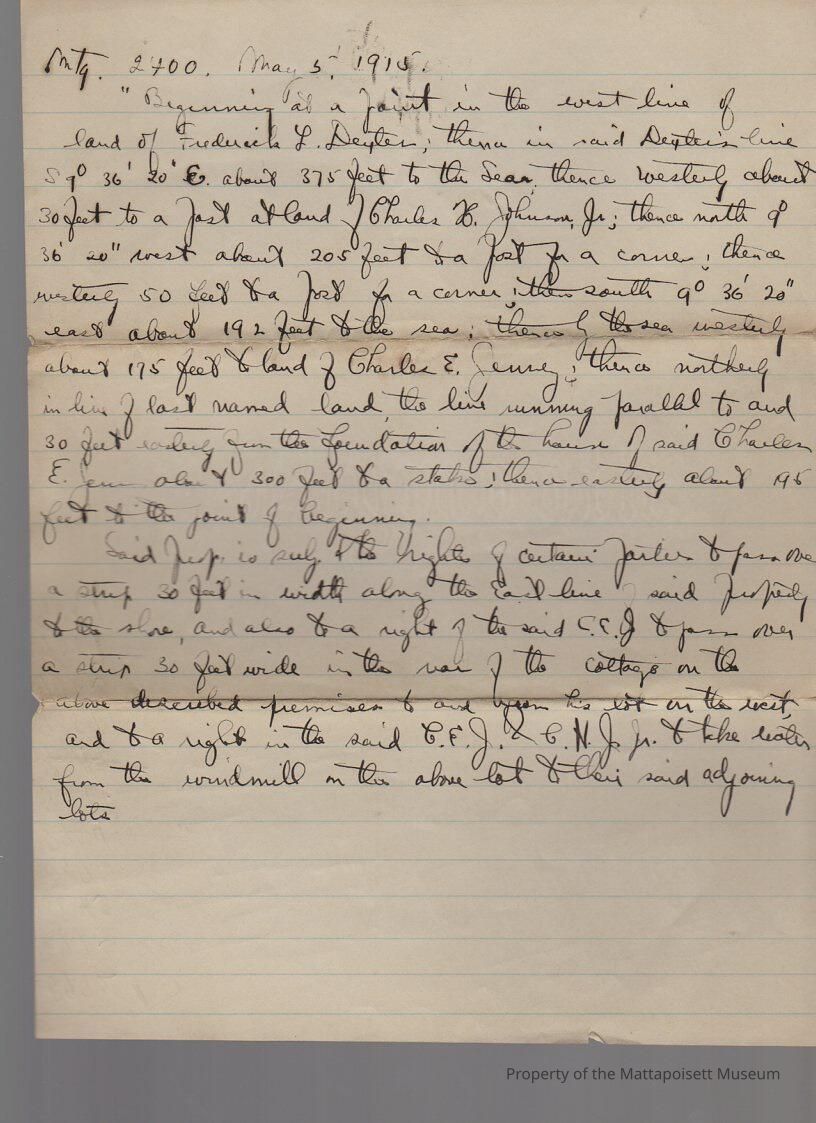 Mtg. 2400. May 5, 1915.
"Beginning at a point in the west line of
land of Frederick L. Dexter; thence in said Dexter's line
S 9° 36' 20" E. about 375 feet to the Sea, thence westerly about
30 feet to a post at land of Charles H. Johnson, Jr; thence north 9°
36' 20" west about 205 feet to a post for a corner; thence
westerly 50 feet to a post for a corner; then south 9° 36' 20"
east about 192 feet to the sea; thence by the sea westerly
about 175 feet to land of Charles E. Jenney; thence northerly
in line of last named land, the line running parallel to and
30 feet easterly from the foundation of the house of said Charles
E. about 300 feet to a stake; thence easterly about 195
feet to the point of beginning.
Said prop. is subj. to the rights of certain parties to pass over
a strip 30 feet in width along the East line of said property
to the shore, and also to a right of the said C.E.J to pass over
a strip 30 feet wide in the rear of the cottage on the
above described premises to and upon his lot on the west,
and to a right in the said C.E.J. & C.H.J. Jr. to take water
from the windmill on the above lot to their said adjoining
lots
Property of the Mattapoisett Museum